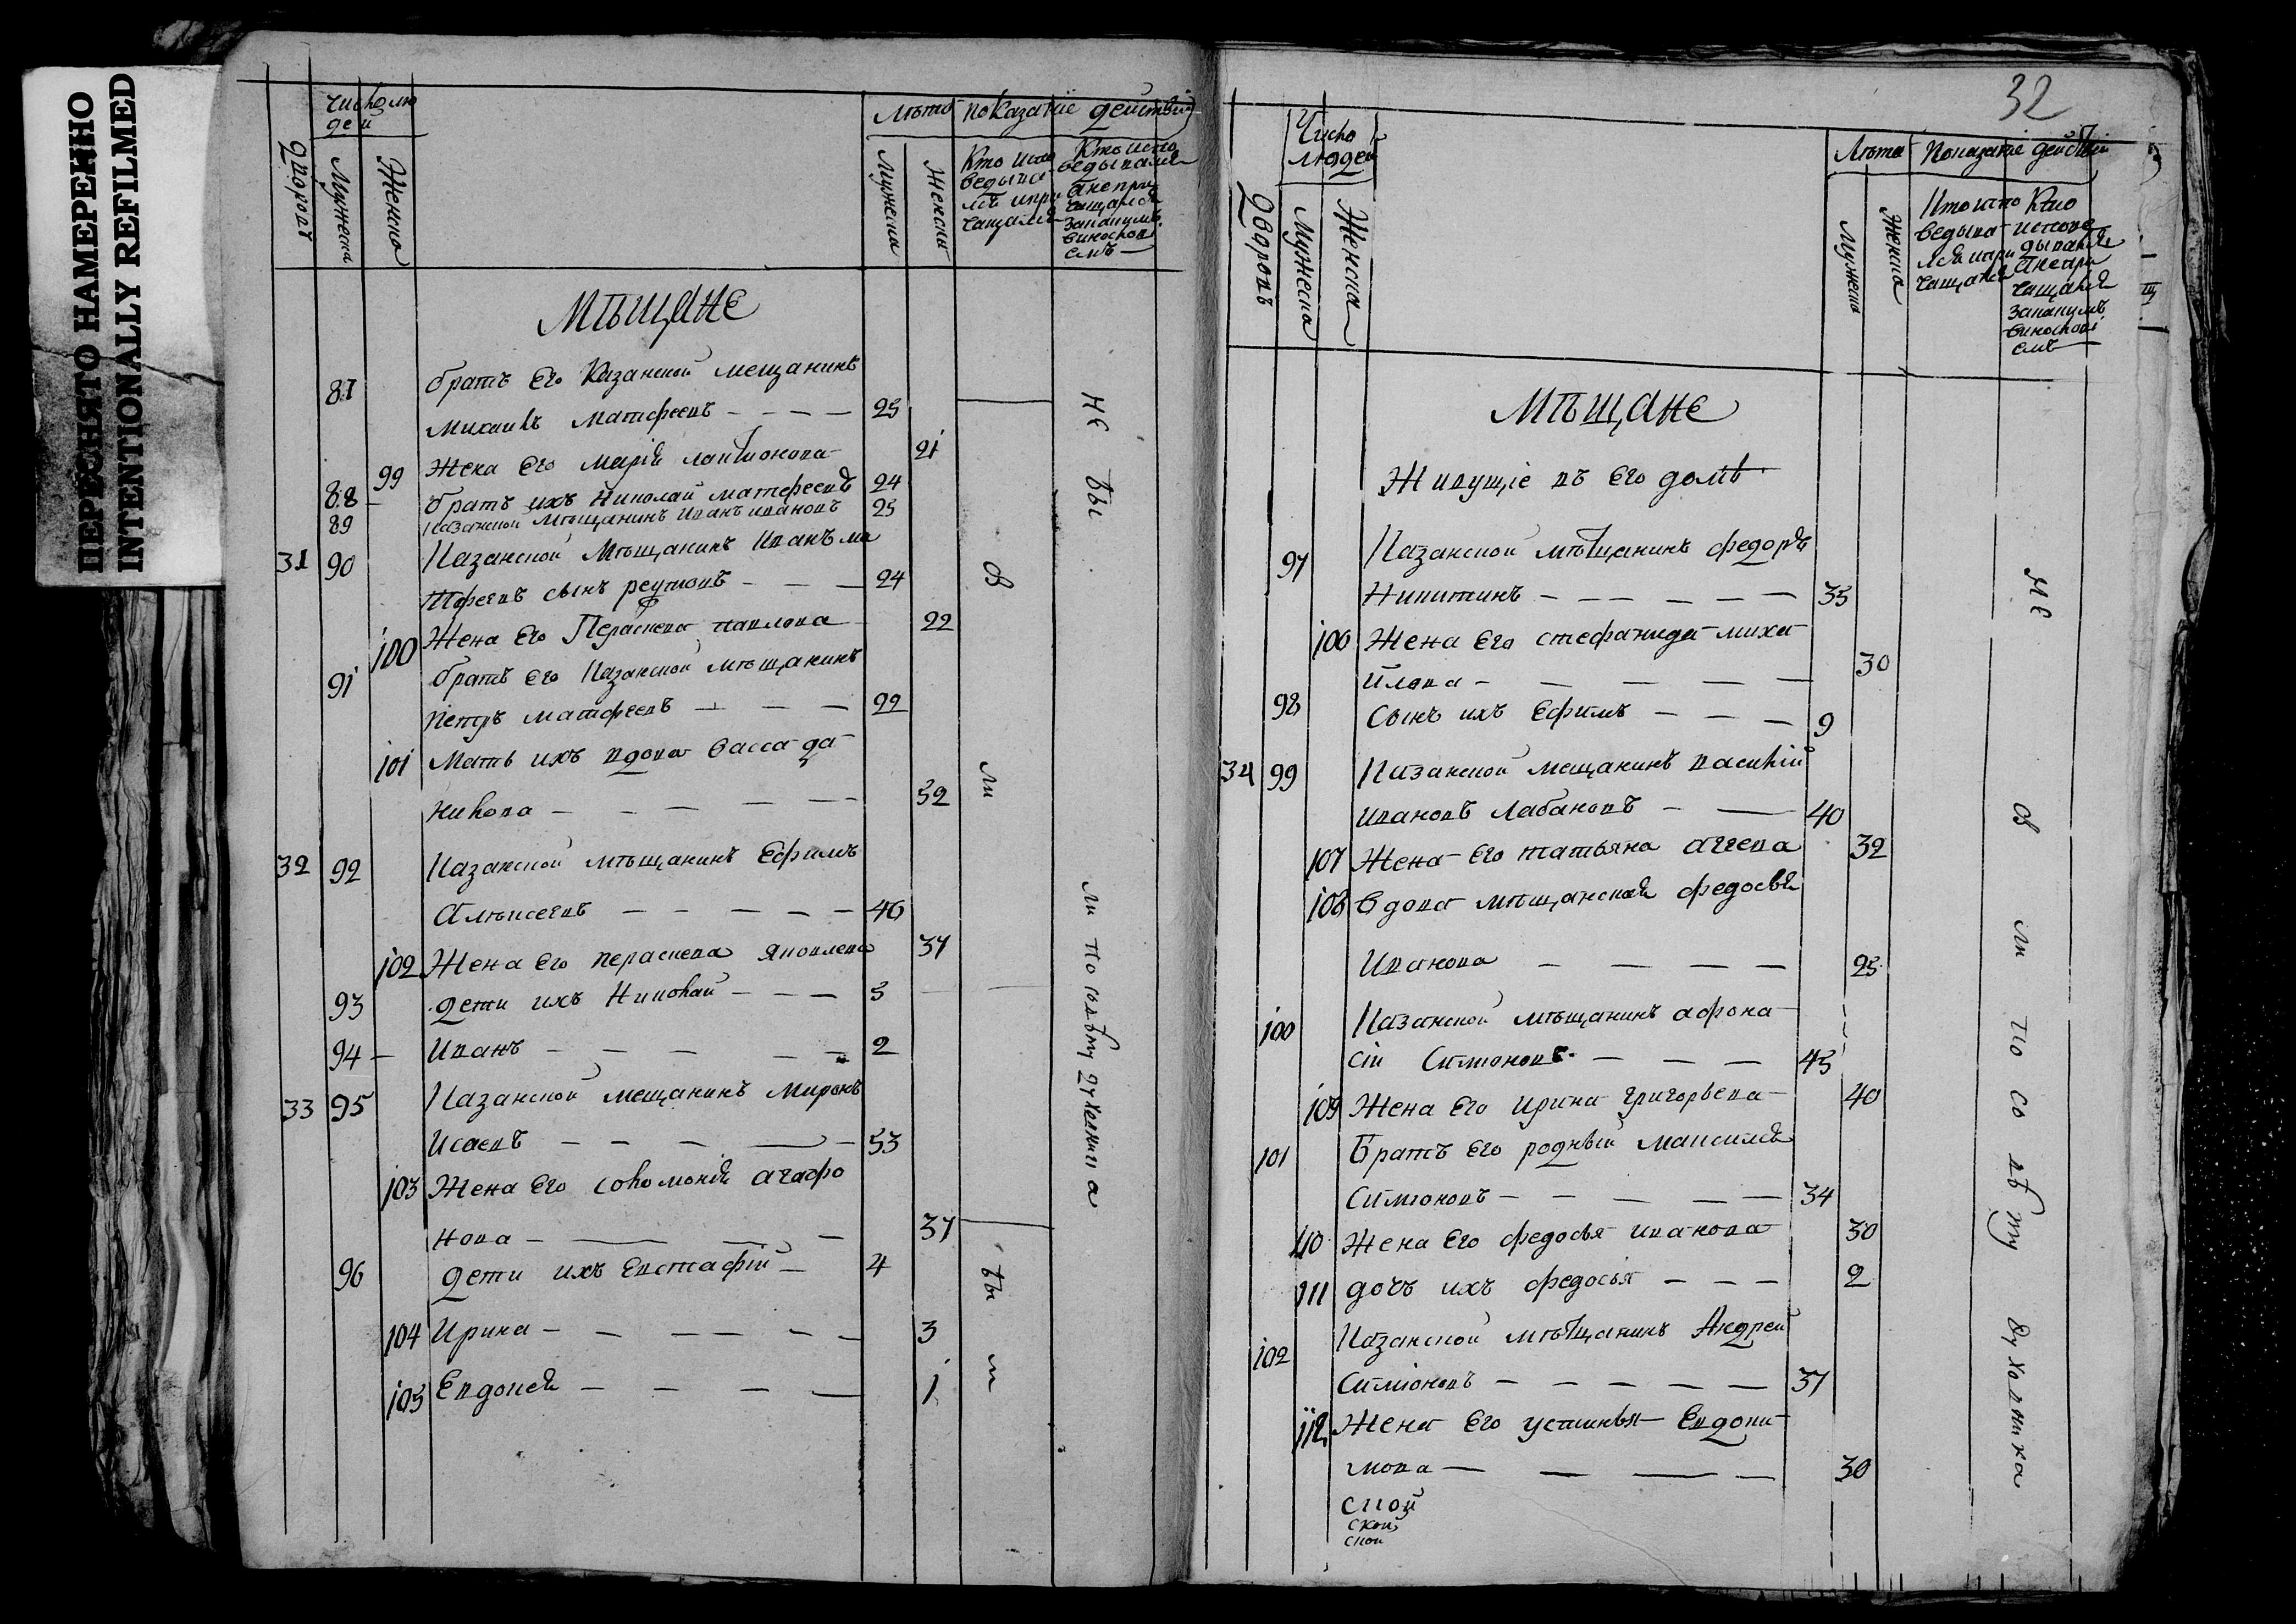 ПЕРЕСНЯТО НАМЕРЕННО
INTENTIONALLY REFILMED
число лю
дей
дворовъ
Мужеска
Женска
Лѣто
показаніе действій
Мужеска
Женска
Кто испо
ведыва
лъ и при
чащался
Кто испо
ведывался
а не при
чащался
за каким
виносло
емъ
Мѣщане
87 братъ Его Казанской мещанинъ
Михаилъ матфеевъ 25
99 Жена Его Марія 21
88 братъ ихъ Николай матфеевъ 24
89 Казанской Мѣщанинъ Иванъ ивановъ 25
31 90 Казанской Мѣщанинъ Иванъ ма
тфеевъ сынъ реутовъ 24
100 Жена Его Пераскева павлова 22
91 братъ Его Казанской мѣщанинъ
Петръ матфеевъ 22
101 Мать ихъ вдова васса да
никова 52
32 92 Казанской мѣщанинъ Ефимъ
Алѣксеевъ 46
102 Жена Его пераскева Яковлева 37
93 дети ихъ Николай 5
94 Иванъ 2
33 95 Казанской мещанинъ Миронъ
Исаевъ 53
103 Жена Его соломонія агафо
нова 37
96 дети ихъ Евстафій 4
104 Ирина 3
105 Евдокея 1
Не бы
ли по совѣту духовника
Бы ли
32
Число
людей
Дворовъ
Мужеска
Женска
Лѣта
Показаніе действій
Мужеска
Женска
Кто испо
ведыва
лся и при
чащался
Кто
испове
дывался
а не при
чащался
за каким
виносло
емъ
Мѣщане
Живущіе въ его домѣ
97 Казанской мѣщанинъ федоръ
Никитинъ 35
106 Жена Его стефанида миха
йлова 30
98 Сынъ ихъ Ефимъ 9
34 99 Казанской мещанинъ василій
ивановъ Лабановъ 40
107 Жена Его татьяна аггеева 32
108 вдова мѣщанская федосья
Иванова 25
100 Казанской мѣщанинъ афона
сій Симіоновъ 45
109 Жена Его ирина григорьева 40
101 Братъ Его родный Максимъ
Симіоновъ 34
110 Жена Его федосья иванова 30
111 дочъ ихъ федосья 2
102 Казанской мѣщанинъ Андрей
Симіоновъ 37
112 Жена Его устинья Евдоки
мова 30
ской
ской
ской
Не
ли по совѣту духовника